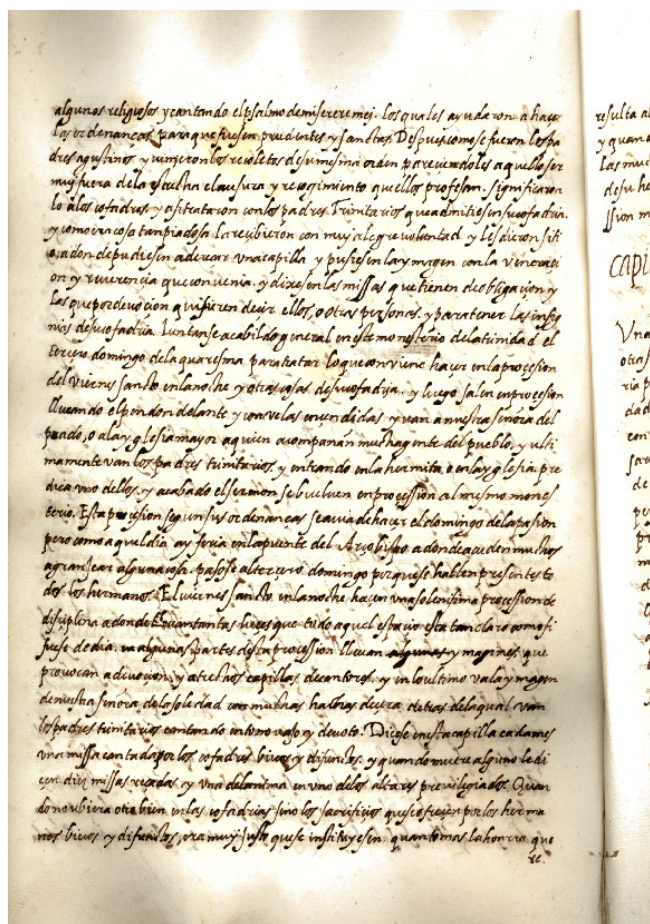 algunos religiosos y cantando el psalmo de miserere mej. los quales ayudaron a hacer
las ordenanças para que fuesen prudentes y sanctas. Despues como se fueron los pa
dres agustinos y vinieron los recoletos de su mesma orden pareciendoles aquello ser
muy fuera de la estrecha clausura y recogimiento que ellos profesan. significaron
lo a los cofadres. y asi trataron con los padres Trinitarios que admitiesen su cofadria.
y como era cosa tan piadosa la recibieron con muy alegre voluntad y les dieron siti
o, adonde pudiesen aderecar una capilla y pusiesen la ymagen con la veneraci
on y reverencia que convenia. y dixesen las missas que tienen de obligaçion y
las que por devocion quisieren decir ellos, o otras personas. y para tener las insig
nias de su cofadria. Iuntanse a cabildo general en este monesterio de la trinidad el
tercero domingo de la quaresma para tratar lo que conviene hacer en la procesion
del viernes sancto en la noche y otras cosas de su cofadria. y luego salen en procesion
llevando el pendon delante y con velas encendidas y van a nuestra señora del
prado, o a la yglesia mayor a quien acompañan mucha gente del pueblo, y ulti
mamente van los padres trinitarios. y entrando en la hermita, o en la yglesia pre
dica uno dellos. y acabado el sermon se buelven en procession al mesmo mones
terio. Esta procesion segun sus ordenanças se avia de hacer el domingo de la pasion
pero como aquel dia ay feria en la puente del Arçobispo adonde acuden muchos
a granjear alguna cosa. pasose al tercero domingo porque se hallen presentes to
dos los hermanos. El viernes sancto en la noche hacen una solenisima procession de
disciplina adonde llevan tantas luces que todo aquel espacio esta tan claro como si
fuese de dia. en algunas partes desta procession llevan algunas ymagines que
provocan a devocion, y a trechos capillas de cantores. y en lo ultimo va la ymagen
de nuestra señora de la soledad con muchas hachas de cera. detras de la qual van
los padres trinitarios cantando en tono vajo y devoto. Dicese en esta capilla cada mes
una missa cantada por los cofadres bivos y difunctos. y quando muere alguno le di
cen diez missas reçadas y una del anima en uno de los altares previlegiados. Quan
do no ubiera otro bien en las cofadrias sino los sacrificios que se ofreçen por los herma
nos bivos y difunctos, era muy justo que se instituyesen. quanto mas la honrra que